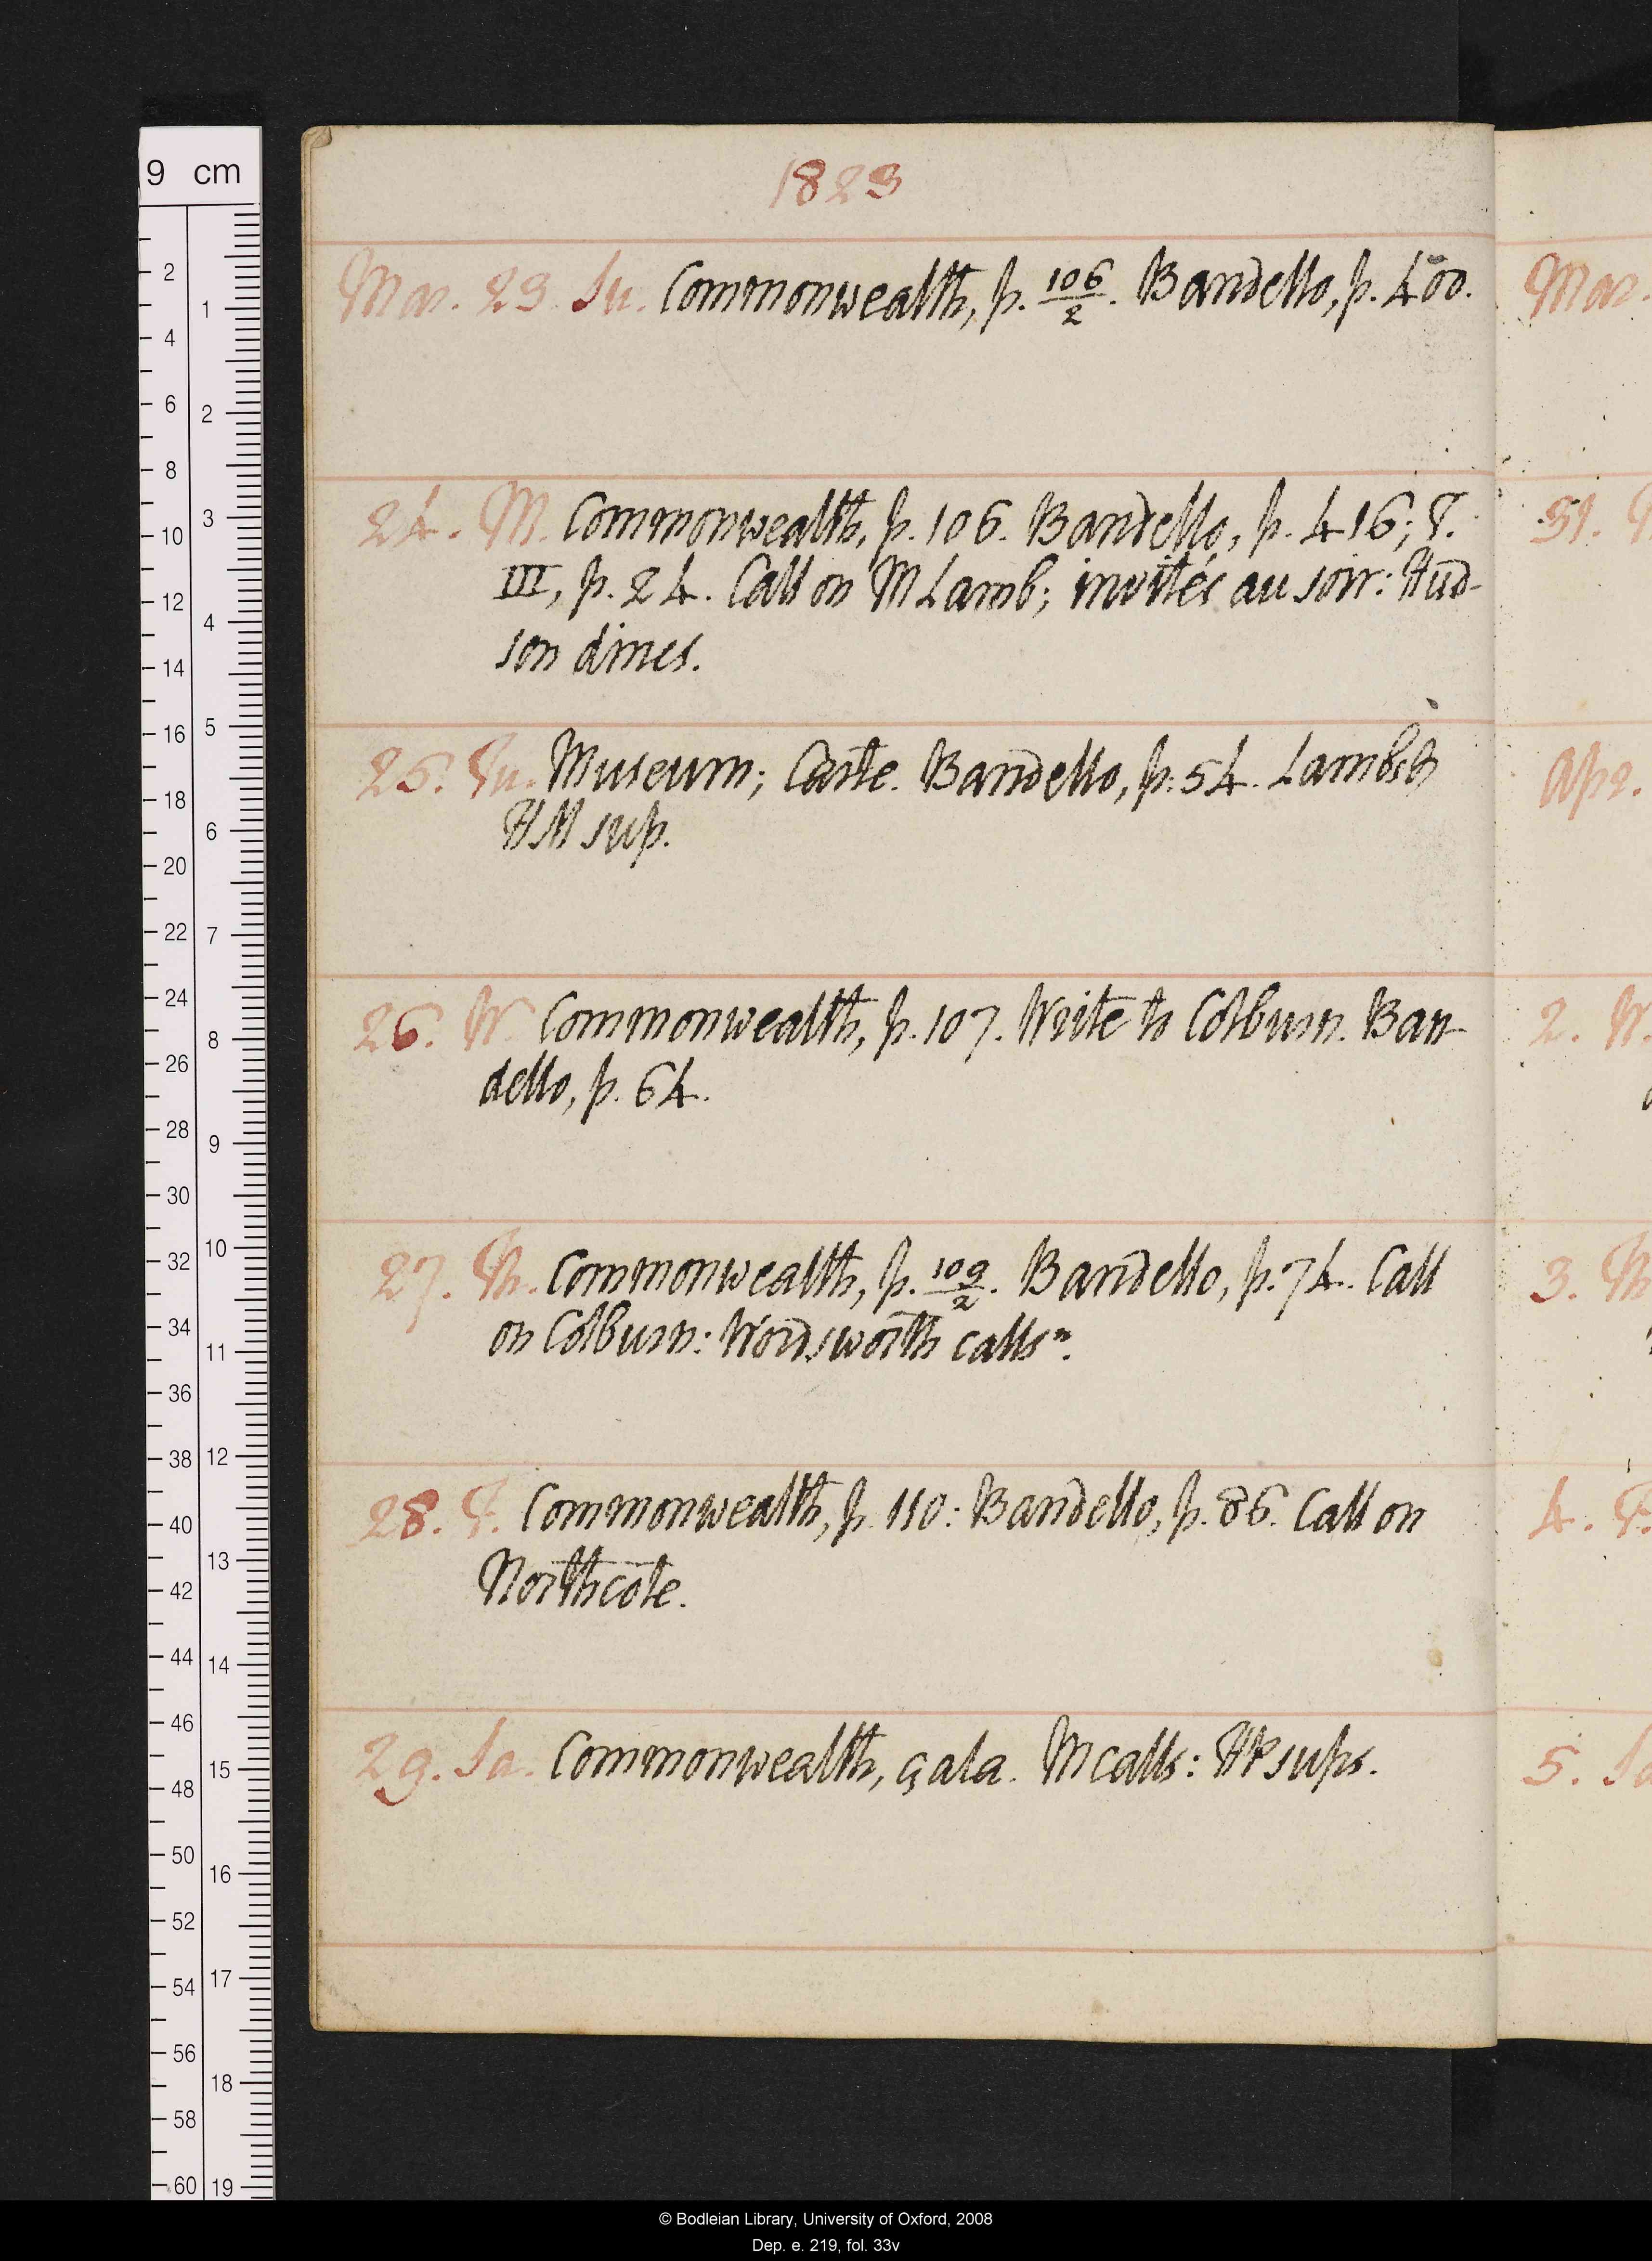 1823
Mar. 23. Su. Commonwealth, p. 106/2. Bandello, p. 400.
24. M. Commonwealth, p. 106. Bandello, p. 416; T.
III, p. 24. Call on M Lamb; invités au soir: Hud-
son dines.
25. Tu. Museum; Carte. Bandello, p. 54. Lambs &
HM sup.
26. W. Commonwealth, p. 107. Write to Colburn. Ban-
dello, p. 64.
27. Th. Commonwealth, p. 109/2. Bandello, p. 74. Call
on Colburn: Wordsworth calls n.
28. F. Commonwealth, p. 110: Bandello, p. 86. Call on
Northcote.
29. Sa. Commonwealth, çala. M calls: HP sups.
Mar.
31.
Apr.
2. W.
3. Th
4. F.
5. Sa
9 cm
© Bodleian Library, University of Oxford, 2008
Dep. e. 219, fol. 33v